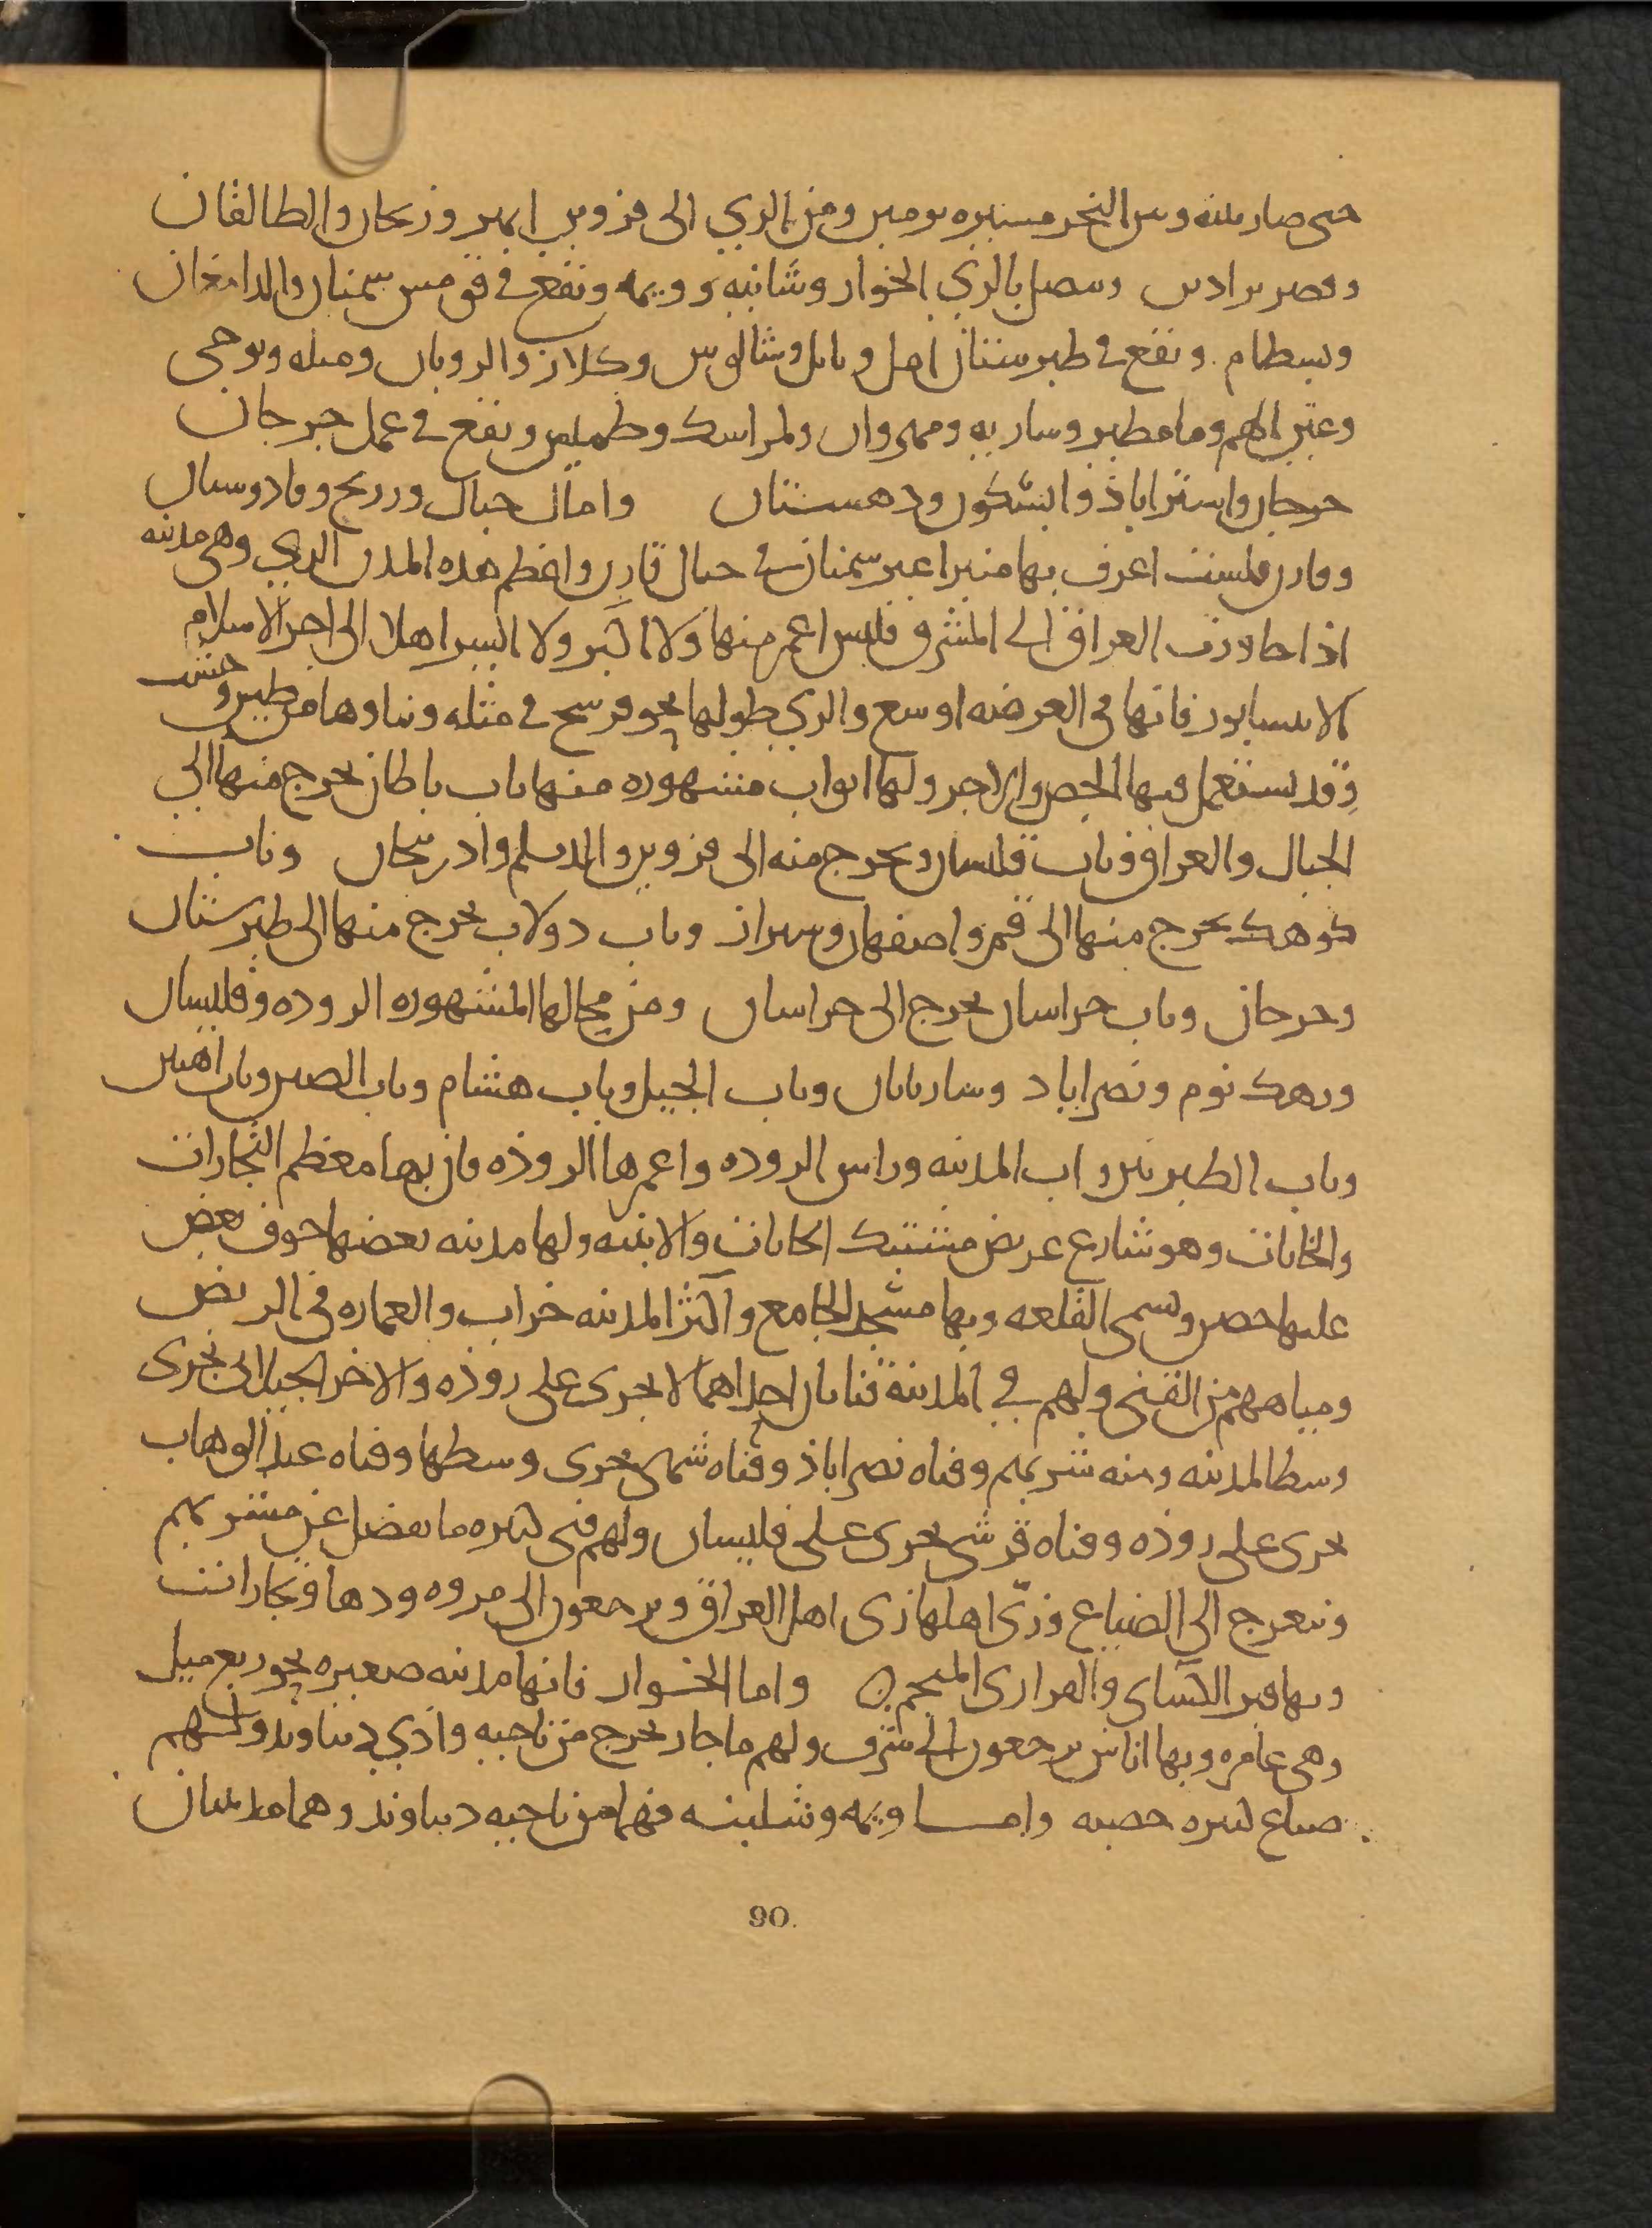 حتى صار بينه وبين البحر مسيره يومين ومن الري الى قزوين ابهر وزنجان والطالقان
وقصر براذين ويتصل بالري الخوار وشلنبه وويمه ويقع في قومس سمنان والدامغان
وبسطام ويقع في طبرستان امل وناتل وشالوس وكلار والرويان وميله وبرجى
وعين الهم ومامطير وساريه ومهروان ولمراسك وطميس ويقع في عمل جرجان
جرجان واستراباذ وابسكون ودهستان واما جبال ورونج وفادوسبان
وقارن فلست اعرف بها منبرا غير سمنان في جبال قارن واعظم هذه المدن الري وهي مدينه
اذا جاوزت العراق الى المشرق فليس اعمر منها ولا اكبر ولا ايسر اهلا الى اخر الاسلام
الا نيسابور فانها في العرضه اوسع والري طولها نحو فرسخ في مثله وبناوها من طين وخشب
وقد يستعمل فيها الجص والاجر ولها ابواب مشهوره منها باب باطان يخرج منها الى
الجبال والعراق وباب فليسان ويخرج منه الى قزوين والديلم واذربيجان وباب
كوهك يخرج منها الى قم واصفهان وشيراز وباب دولاب يخرج منها الى طبرستان
وجرجان وباب خراسان يخرج الى خراسان ومن محالها المشهوره الروذه وفليسان
ودهك نوم ونصراباد وساربانان وباب الجبل وباب هشام وباب الصين وباب اهين
وباب الطبريين واب المدينه وراس الروذه واعمرها الروذه فان بها معظم التجارات
والخانات وهو شارع عريض مشتبك الخانات والابنيه ولها مدينه بعضها جوف بعض
عليها حصن وتسمى القلعه وبها مسجد الجامع واكثر المدينه خراب والعماره في الربض
ومياههم من القنى ولهم في المدينه قناتان احداهما لا يجرى على روذه والاخر الجبل الى تجرى
وسط المدينه ومنه شربهم وقناه نصراباذ وقناه شمى تجرى وسطها وقناه عبد الوهاب
تجرى على روذه وقناه قرشى تجرى على فليسان ولهم قنى كثيره ما يفضل عن مشربهم
ويتعرج الى الضياع وزى اهلها زى اهل العراق ويرجعون الى مروه ودها وتجارات
وبها قبر الكساى والفزارى المنجم ه واما الخوار فانها مدينه صغيره نحو ربع ميل
وهي عامره وبها اناس يرجعون الى شرف ولهم ما جار يخرج من ناحيه وادي دنباوند ولهم
ضياع كثيره خصبه واما ويمه وشلبنه فهما من ناحيه دنباوند وهما مدينتان
90.